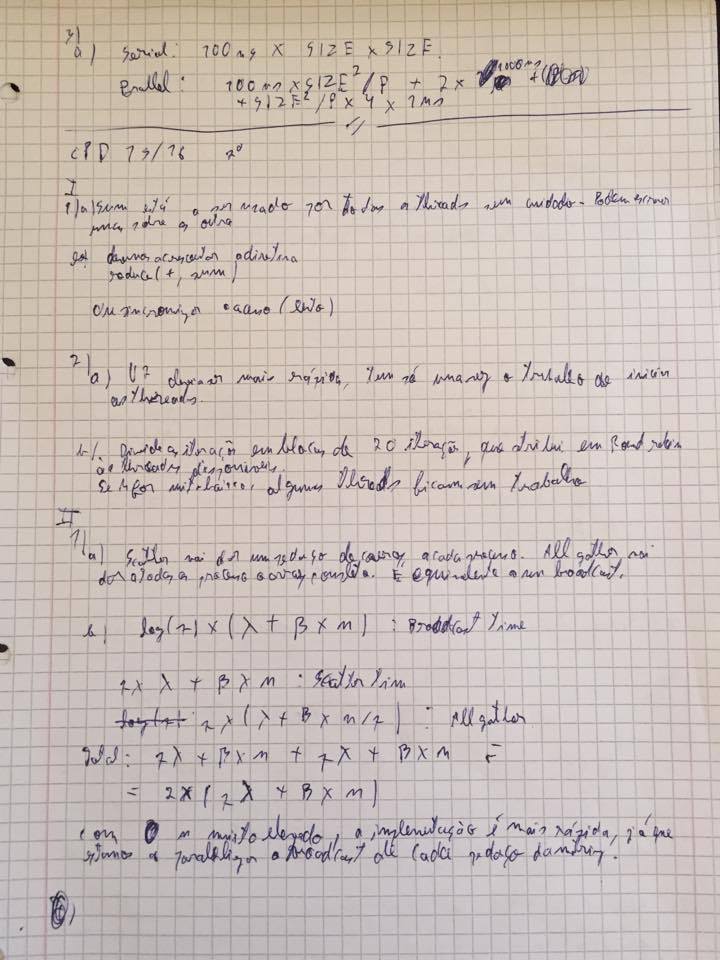 3)
a) Serial: 100 ns X SIZE X SIZE
Parallel: 100 ns x SIZE²/P + 2 x 1000 ns +
+ SIZE²/P x 4 x 1 ns
CPD 15/16 2º
I
1) a) Sum está a ser usado por todas a threads sem cuidado. Podem escrever
umas sobre as outra
devemos acrescentar a diretiva
reduce(+, sum)
Ou sincronizar o acesso (lento)
2)
a) V2 deve ser mais rápida, tem só uma vez o trabalho de iniciar
as threads.
b) Divide as iteração em blocos de 20 iteração, que atribui em Round robin
às threads disponíveis.
Se N for muito baixo, algumas threads ficam sem trabalho
II
1) a) Scatter vai dar um pedaço do array a cada processo. All gather vai
dar a todos os processo o array completo. É equivalente a um broadcast.
b) log(2) x (λ + β x n) : Broadcast Time
2 x λ + β x n : Scatter Time
2 x (λ + β x n/2) : All gather
Total: 2λ + β x n + 2λ + β x n =
= 2 x (2λ + β x n)
Com n muito elevado, a implementação é mais rápida, já que
estamos a paralelizar o broadcast até cada pedaço do array.